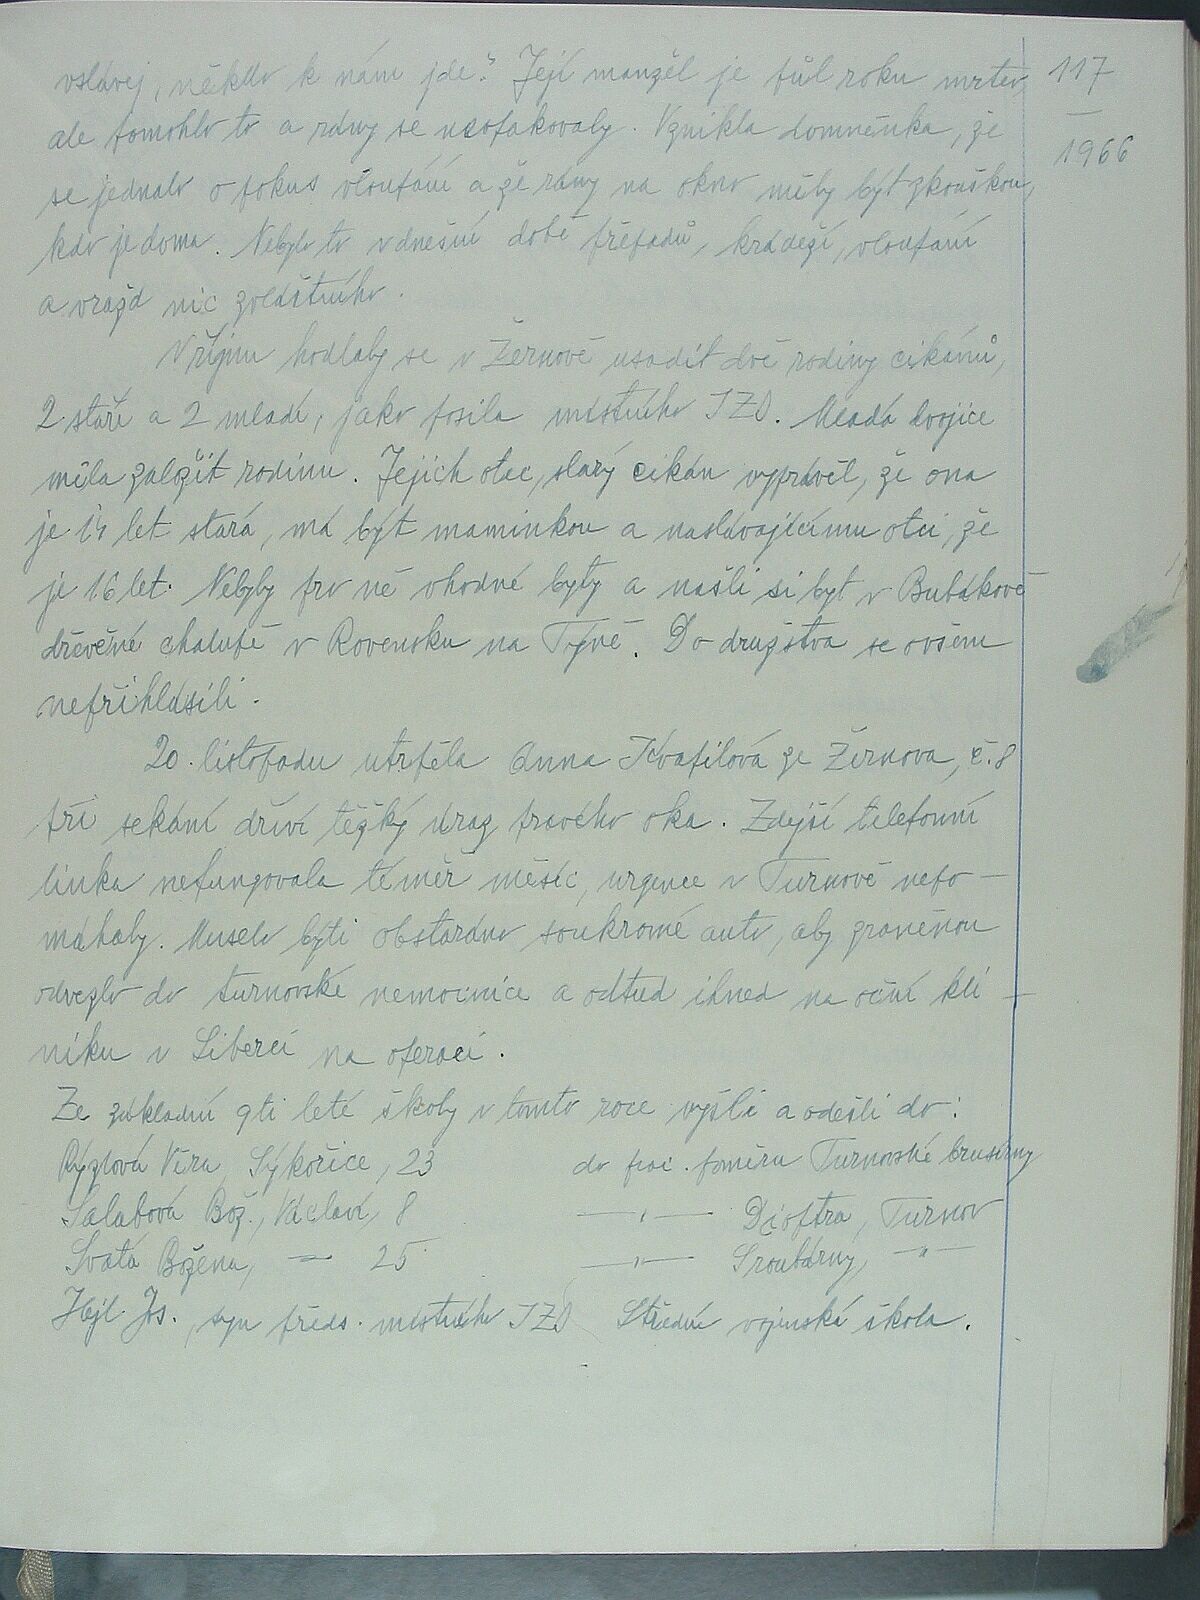 vstávej, někdo k nám jde." Její manžel je půl roku mrtev, 117
ale pomohlo to a rány se neopakovaly. Vznikla domněnka, že
1966
se jednalo o pokus vloupání a že rány na okno měly být zkouškou,
kdo je doma. Nebylo to v dnešní době přepadů, krádeží, vloupání
a vražd nic zvláštního.
V říjnu hodlaly se v Žernově usadit dvě rodiny cikánů,
2 staří a 2 mladí, jako posila místního JZD. Mladá dvojice
měla založit rodinu. Jejich otec, starý cikán vyprávěl, že ona
je 14 let stará, má být maminkou a nastávajícímu otci, že
je 16 let. Nebyly pro ně vhodné byty a našli si byt v Bubákově
dřevěné chalupě v Rovensku na Týně. Do družstva se ovšem
nepřihlásili.
20. listopadu utrpěla Anna Kvapilová ze Žernova, č. 8
při sekání dříví těžký úraz pravého oka. Zdejší telefonní
linka nefungovala téměř měsíc, urgence v Turnově nepo-
máhaly. Muselo býti obstaráno soukromé auto, aby zraněnou
odvezlo do turnovské nemocnice a odtud ihned na oční kli-
niku v Liberci na operaci.
Ze základní 9ti leté školy v tomto roce vyšli a odešli do:
Rýzlová Věra, Sýkořice, 23 do prac. poměru Turnovské brusírny
Šalabová Bož., Václaví, 8 —"— Dioptra, Turnov
Svatá Božena, — 25 —"— Šroubárny, —"—
Hejl Jos., syn předs. místního JZD Střední vojenská škola.